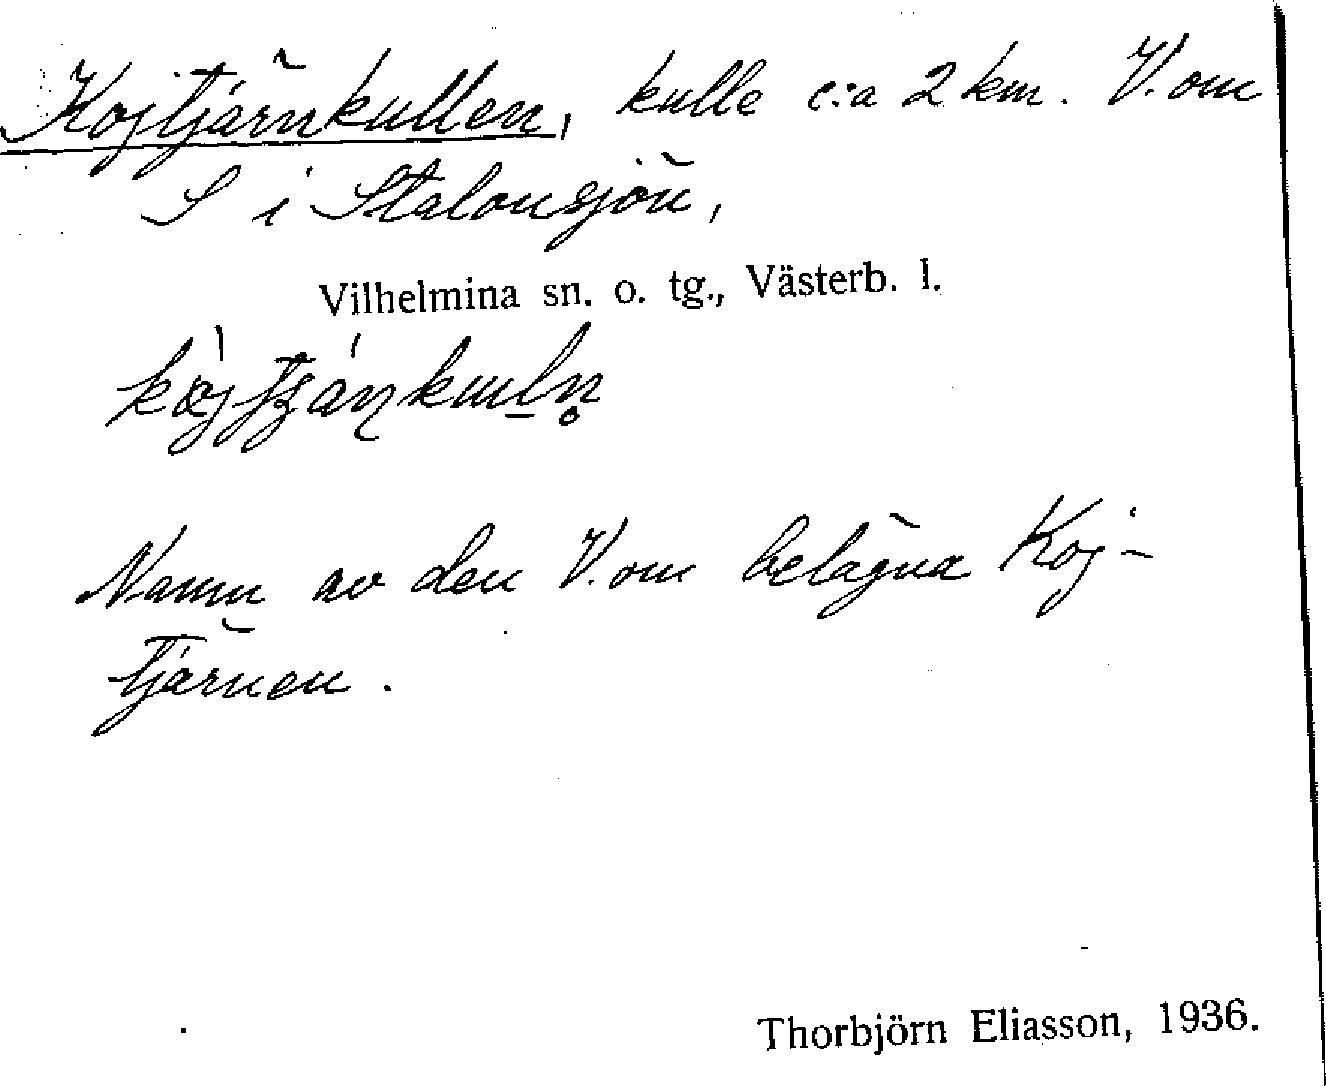 Kojtjärnkullen, kulle c:a 2 km. V. om
S i Stalonsjön,
Vilhelmina sn. o. tg., Västerb. l.
Namn av den V. om belägna Koj-
tjärnen.
Thorbjörn Eliasson, 1936.